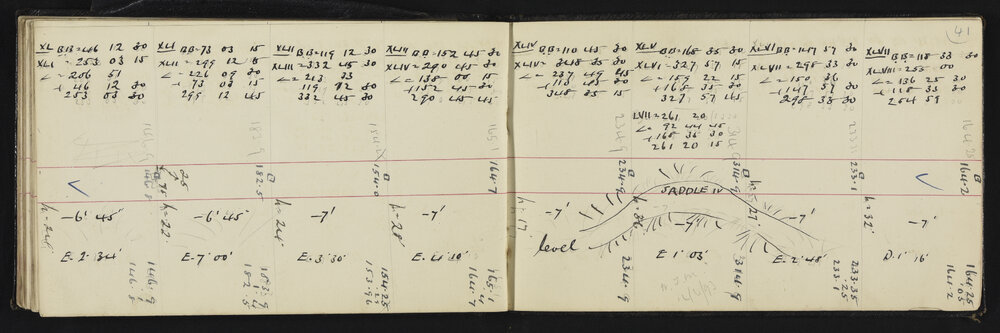 41
XL BB=46 12 30
XLI =253 03 15
∠=206 51
+ 46 12 30
253 03 30
XLI BB=73 03 15
XLII=299 12
∠=226 09 30
+ 73 03 15
299 12 45
XLII BB=119 12 30
XLIII=332 45 30
∠=213 33
119 12 30
332 45 30
XLIII BB=152 45 30
XLIV=290 45 30
∠=138 00 15
+152 45 30
290 45 45
XLIV BB=110 45 30
XLV=348 35 15
∠=237 49 45
+110 45 30
348 35 15
XLV BB=168 35 30
XLVI=327 57 15
∠=159 22 15
+168 35 30
327 57 45
LVII=261 20
∠= 92 44 45
+168 35 30
261 20 15
XLVI BB=147 57 30
XLVII=298 33 30
∠=150 36
+147 57 30
298 33 30
XLVII BB=118 33 30
XLVIII=255 00
∠=136 25 30
+118 33 30
254 59
182.5
154.0
164.7
234.9
314.9
233.1
164.2
SADDLE IV
h=24
-6' 45"
h=22
-6' 45"
h=24
-7'
h=28
-7'
h=17
-7'
h=36
-7'
h=27
-7'
h=32
level
E. 2' 34"
E. 7' 00"
E. 3' 30"
E. 4' 30"
E. 1' 03"
E. 2' 48"
D. 1' 16"
146.9
146.8
183.9
1.4
182.5
154.25
153.96
165.1
.4
164.7
234.9
314.9
233.35
.25
233.1
164.25
.05
164.2